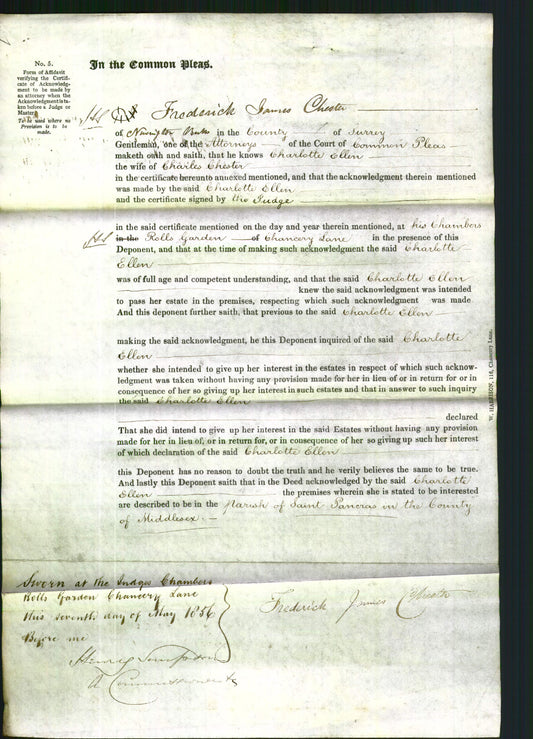 No. 5.
Form of Affidavit
verifying the Certifi-
cate of Acknowledg-
ment to be made by
an attorney when the
Acknowledgment is ta-
ken before a Judge or
Master.
To be used where no
Provision is to be
made.
In the Common Pleas.
Frederick James Chester
of Newington Butts in the County of Surrey
Gentleman, one of the Attorneys of the Court of Common Pleas
maketh oath and saith, that he knows Charlotte Ellen
the wife of Charles Chester
in the certificate hereunto annexed mentioned, and that the acknowledgment therein mentioned
was made by the said Charlotte Ellen
and the certificate signed by the Judge
in the said certificate mentioned on the day and year therein mentioned, at his Chambers
in the Rolls Garden of Chancery Lane in the presence of this
Deponent, and that at the time of making such acknowledgment the said Charlotte
Ellen
was of full age and competent understanding, and that the said Charlotte Ellen
knew the said acknowledgment was intended
to pass her estate in the premises, respecting which such acknowledgment was made
And this deponent further saith, that previous to the said Charlotte Ellen
making the said acknowledgment, he this Deponent inquired of the said Charlotte
Ellen
whether she intended to give up her interest in the estates in respect of which such acknow-
ledgment was taken without having any provision made for her in lieu of or in return for or in
consequence of her so giving up her interest in such estates and that in answer to such inquiry
the said Charlotte Ellen
declared
That she did intend to give up her interest in the said Estates without having any provision
made for her in lieu of, or in return for, or in consequence of her so giving up such her interest
of which declaration of the said Charlotte Ellen
this Deponent has no reason to doubt the truth and he verily believes the same to be true.
And lastly this Deponent saith that in the Deed acknowledged by the said Charlotte
Ellen the premises wherein she is stated to be interested
are described to be in the parish of Saint Pancras in the County
of Middlesex.
W. HARRISON, 116, Chancery Lane.
Sworn at the Judges Chambers
Rolls Garden Chancery Lane
this seventh day of May 1856
Before me
Frederick James Chester
Henry
A Commissioner &c